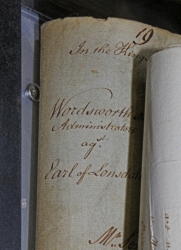 19
In the King
Wordsworth
Administrator
agt.
Earl of Lonsdal
Mr.